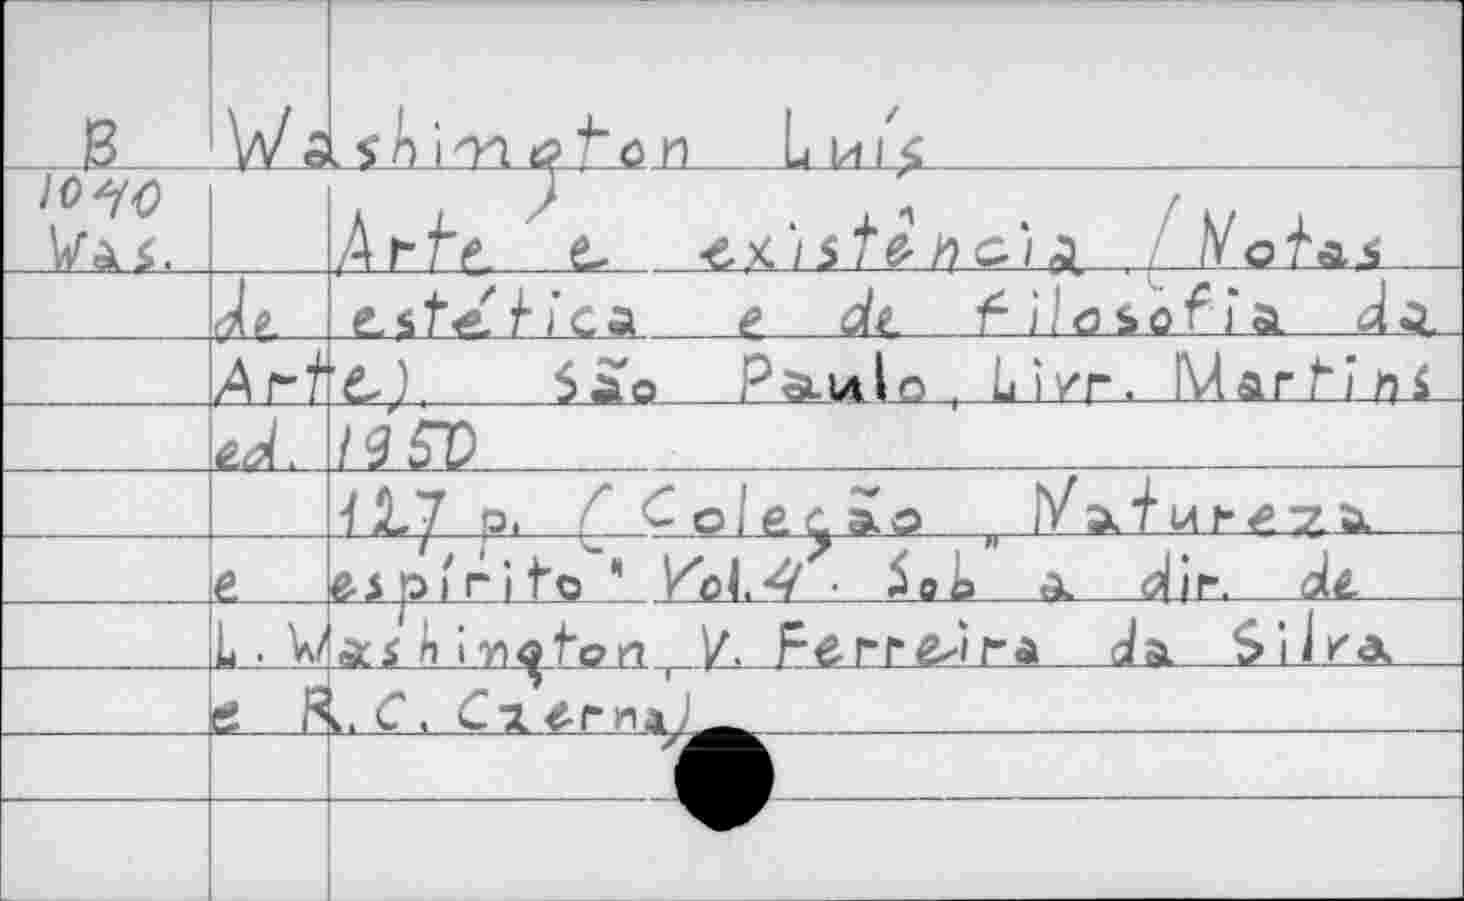 B Washington Luís
1040
Was. Arte e existência. (Notas
de estética e de filosofia da
Arte). São Paulo, Livr. Martins
ed. 1950
127 p. (Coleção "Natureza
e espírito" Vol. 4. Sob a dir. de
L. Washington, V. Ferreira da Silva
e R. C. Czerna)